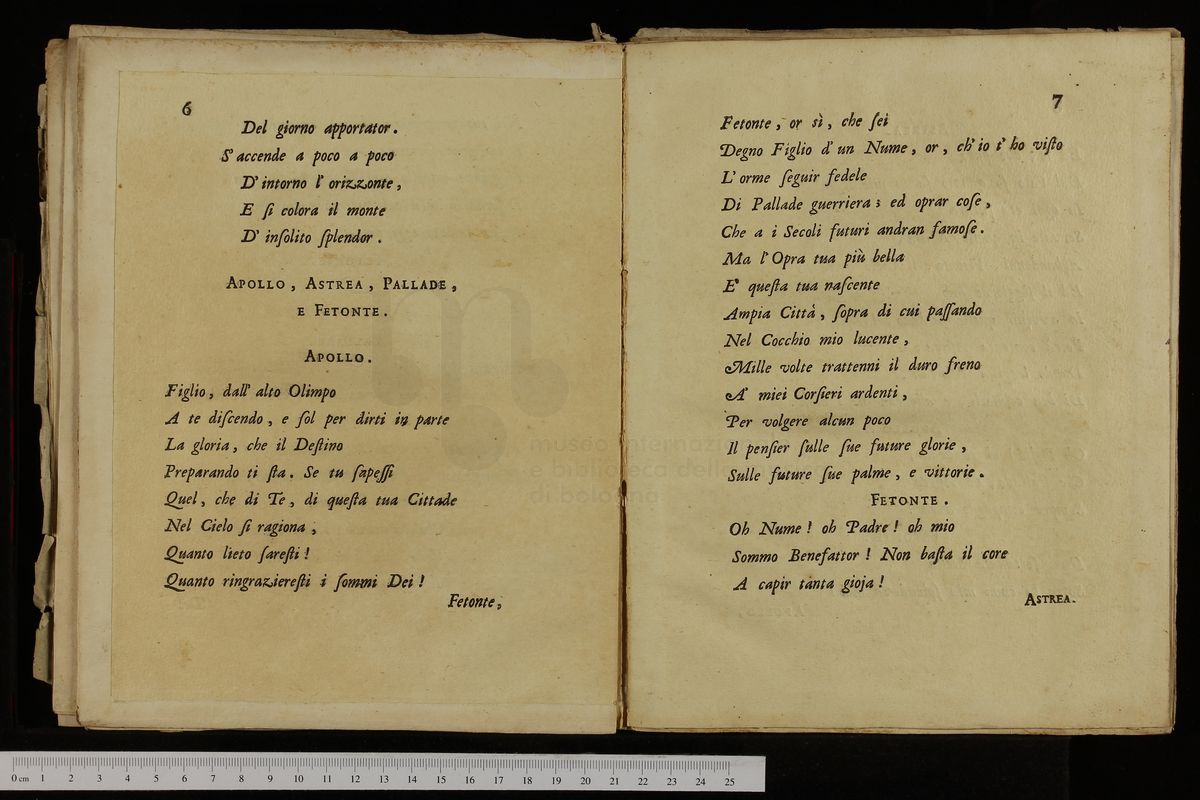 6
Del giorno apportator.
S'accende a poco a poco
D'intorno l'orizzonte,
E ſi colora il monte
D'inſolito ſplendor.
APOLLO, ASTREA, PALLADE,
E FETONTE.
APOLLO.
Figlio, dall'alto Olimpo
A te diſcendo, e ſol per dirti in parte
La gloria, che il Deſtino
Preparando ti ſta. Se tu ſapeſſi
Quel, che di Te, di queſta tua Cittade
Nel Cielo ſi ragiona,
Quanto lieto ſareſti!
Quanto ringraziereſti i ſommi Dei!
Fetonte,
7
Fetonte, or sì, che ſei
Degno Figlio d'un Nume, or, ch'io t'ho viſto
L'orme ſeguir fedele
Di Pallade guerriera; ed oprar coſe,
Che a i Secoli futuri andran famoſe.
Ma l'Opra tua più bella
E' queſta tua naſcente
Ampia Città, ſopra di cui paſſando
Nel Cocchio mio lucente,
Mille volte trattenni il duro freno
A' miei Corſieri ardenti,
Per volgere alcun poco
Il penſier ſulle ſue future glorie,
Sulle future ſue palme, e vittorie.
FETONTE.
Oh Nume! oh Padre! oh mio
Sommo Benefattor! Non baſta il core
A capir tanta gioja!
ASTREA.
museo internazi
e biblioteca della
di bologna
0 cm 1 2 3 4 5 6 7 8 9 10 11 12 13 14 15 16 17 18 19 20 21 22 23 24 25